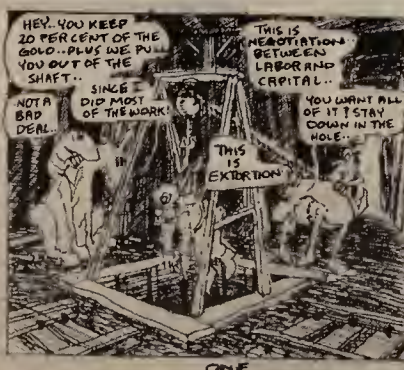 HEY..YOU KEEP
20 PERCENT OF THE
GOLD..PLUS WE PU
YOU OUT OF THE
SHAFT..
NOT A
BAD
DEAL..
SINCE
DID MOST
OF THE WORK!
THIS IS
NEGOTIATION
BETWEEN
LABOR AND
CAPITAL..
YOU WANT ALL
OF IT? STAY
DOWN IN THE
HOLE..
THIS
IS
EXTORTION